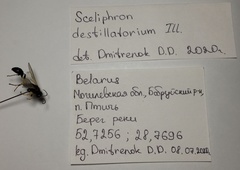 Sceliphron
destillatorium Ill.
det. Dmitrenok D.D. 2020г.
Belarus
Могилевская обл, Бобруйский р-н,
п. Птичь
Берег реки
52,7256 ; 28,7696
leg. Dmitrenok D.D. 08.07.2020